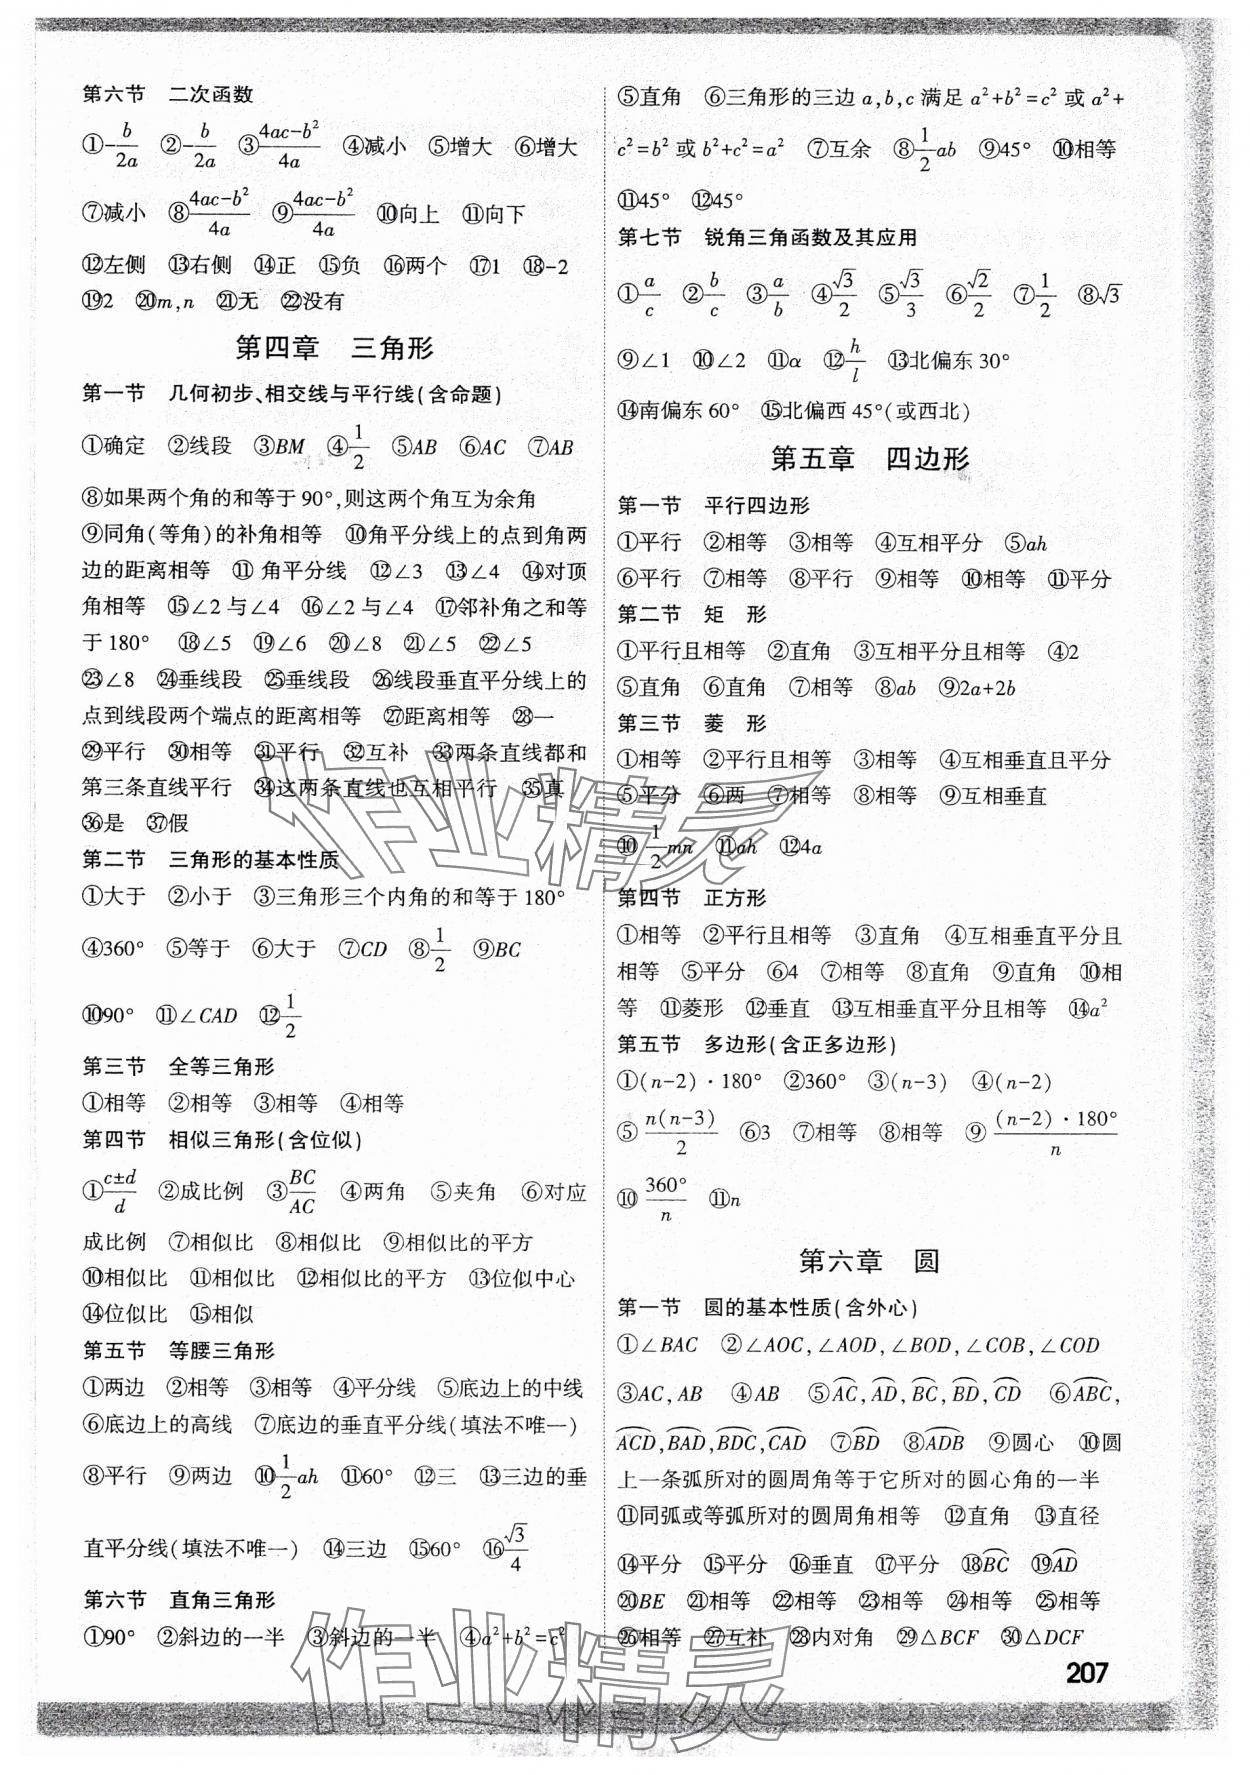 第六节　二次函数
①-b/2a　②-b/2a　③(4ac-b²)/4a　④减小　⑤增大　⑥增大
⑦减小　⑧(4ac-b²)/4a　⑨(4ac-b²)/4a　⑩向上　⑪向下
⑫左侧　⑬右侧　⑭正　⑮负　⑯两个　⑰1　⑱-2
⑲2　⑳m,n　㉑无　㉒没有
第四章　三角形
第一节　几何初步、相交线与平行线(含命题)
①确定　②线段　③BM　④1/2　⑤AB　⑥AC　⑦AB
⑧如果两个角的和等于90°,则这两个角互为余角
⑨同角(等角)的补角相等　⑩角平分线上的点到角两
边的距离相等　⑪角平分线　⑫∠3　⑬∠4　⑭对顶
角相等　⑮∠2与∠4　⑯∠2与∠4　⑰邻补角之和等
于180°　⑱∠5　⑲∠6　⑳∠8　㉑∠5　㉒∠5
㉓∠8　㉔垂线段　㉕垂线段　㉖线段垂直平分线上的
点到线段两个端点的距离相等　㉗距离相等　㉘一
㉙平行　㉚相等　㉛平行　㉜互补　㉝两条直线都和
第三条直线平行　㉞这两条直线也互相平行　㉟真
㊱是　㊲假
第二节　三角形的基本性质
①大于　②小于　③三角形三个内角的和等于180°
④360°　⑤等于　⑥大于　⑦CD　⑧1/2　⑨BC
⑩90°　⑪∠CAD　⑫1/2
第三节　全等三角形
①相等　②相等　③相等　④相等
第四节　相似三角形(含位似)
①(c±d)/d　②成比例　③BC/AC　④两角　⑤夹角　⑥对应
成比例　⑦相似比　⑧相似比　⑨相似比的平方
⑩相似比　⑪相似比　⑫相似比的平方　⑬位似中心
⑭位似比　⑮相似
第五节　等腰三角形
①两边　②相等　③相等　④平分线　⑤底边上的中线
⑥底边上的高线　⑦底边的垂直平分线(填法不唯一)
⑧平行　⑨两边　⑩1/2ah　⑪60°　⑫三　⑬三边的垂
直平分线(填法不唯一)　⑭三边　⑮60°　⑯√3/4
第六节　直角三角形
①90°　②斜边的一半　③斜边的一半　④a²+b²=c²
⑤直角　⑥三角形的三边a,b,c满足a²+b²=c²或a²+
c²=b²或b²+c²=a²　⑦互余　⑧1/2ab　⑨45°　⑩相等
⑪45°　⑫45°
第七节　锐角三角函数及其应用
①a/c　②b/c　③a/b　④√3/2　⑤√3/3　⑥√2/2　⑦1/2　⑧√3
⑨∠1　⑩∠2　⑪α　⑫h/l　⑬北偏东30°
⑭南偏东60°　⑮北偏西45°(或西北)
第五章　四边形
第一节　平行四边形
①平行　②相等　③相等　④互相平分　⑤ah
⑥平行　⑦相等　⑧平行　⑨相等　⑩相等　⑪平分
第二节　矩　形
①平行且相等　②直角　③互相平分且相等　④2
⑤直角　⑥直角　⑦相等　⑧ab　⑨2a+2b
第三节　菱　形
①相等　②平行且相等　③相等　④互相垂直且平分
⑤平分　⑥两　⑦相等　⑧相等　⑨互相垂直
⑩1/2mn　⑪ah　⑫4a
第四节　正方形
①相等　②平行且相等　③直角　④互相垂直平分且
相等　⑤平分　⑥4　⑦相等　⑧直角　⑨直角　⑩相
等　⑪菱形　⑫垂直　⑬互相垂直平分且相等　⑭a²
第五节　多边形(含正多边形)
①(n-2)·180°　②360°　③(n-3)　④(n-2)
⑤n(n-3)/2　⑥3　⑦相等　⑧相等　⑨(n-2)·180°/n
⑩360°/n　⑪n
第六章　圆
第一节　圆的基本性质(含外心)
①∠BAC　②∠AOC,∠AOD,∠BOD,∠COB,∠COD
③AC,AB　④AB　⑤⌒AC,⌒AD,⌒BC,⌒BD,⌒CD　⑥⌒ABC,
⌒ACD,⌒BAD,⌒BDC,⌒CAD　⑦⌒BD　⑧⌒ADB　⑨圆心　⑩圆
上一条弧所对的圆周角等于它所对的圆心角的一半
⑪同弧或等弧所对的圆周角相等　⑫直角　⑬直径
⑭平分　⑮平分　⑯垂直　⑰平分　⑱⌒BC　⑲⌒AD
⑳BE　㉑相等　㉒相等　㉓相等　㉔相等　㉕相等
㉖相等　㉗互补　㉘内对角　㉙△BCF　㉚△DCF
207
作业精灵
作业精灵